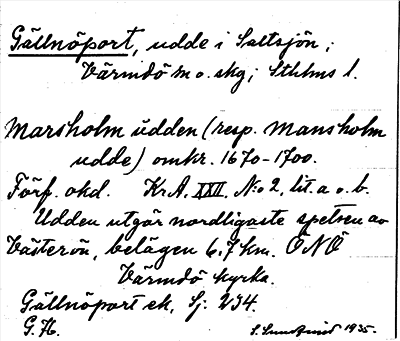 Gällnöport, udde i Saltsjön;
Värmdö sn o. skg; Sthlms l.
Marsholm udden (resp. Mansholm
udde) omkr. 1670-1700.
Förf. okd. Kr.A. XXII, N:o 2, lit. a o. b.
Udden utgör nordligaste spetsen av
Västerön, belägen 6,7 km. ÖNÖ
Värmdö kyrka.
Gällnöport ek, Sj: 234.
G. H.
S. Sundqvist 1935.